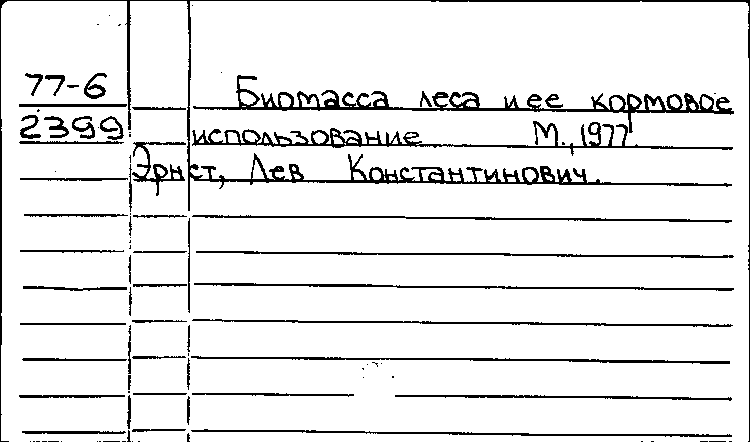 77-6 Биомасса леса и ее кормовое
2399 использование М., 1977.
Эрнст, Лев Константинович.